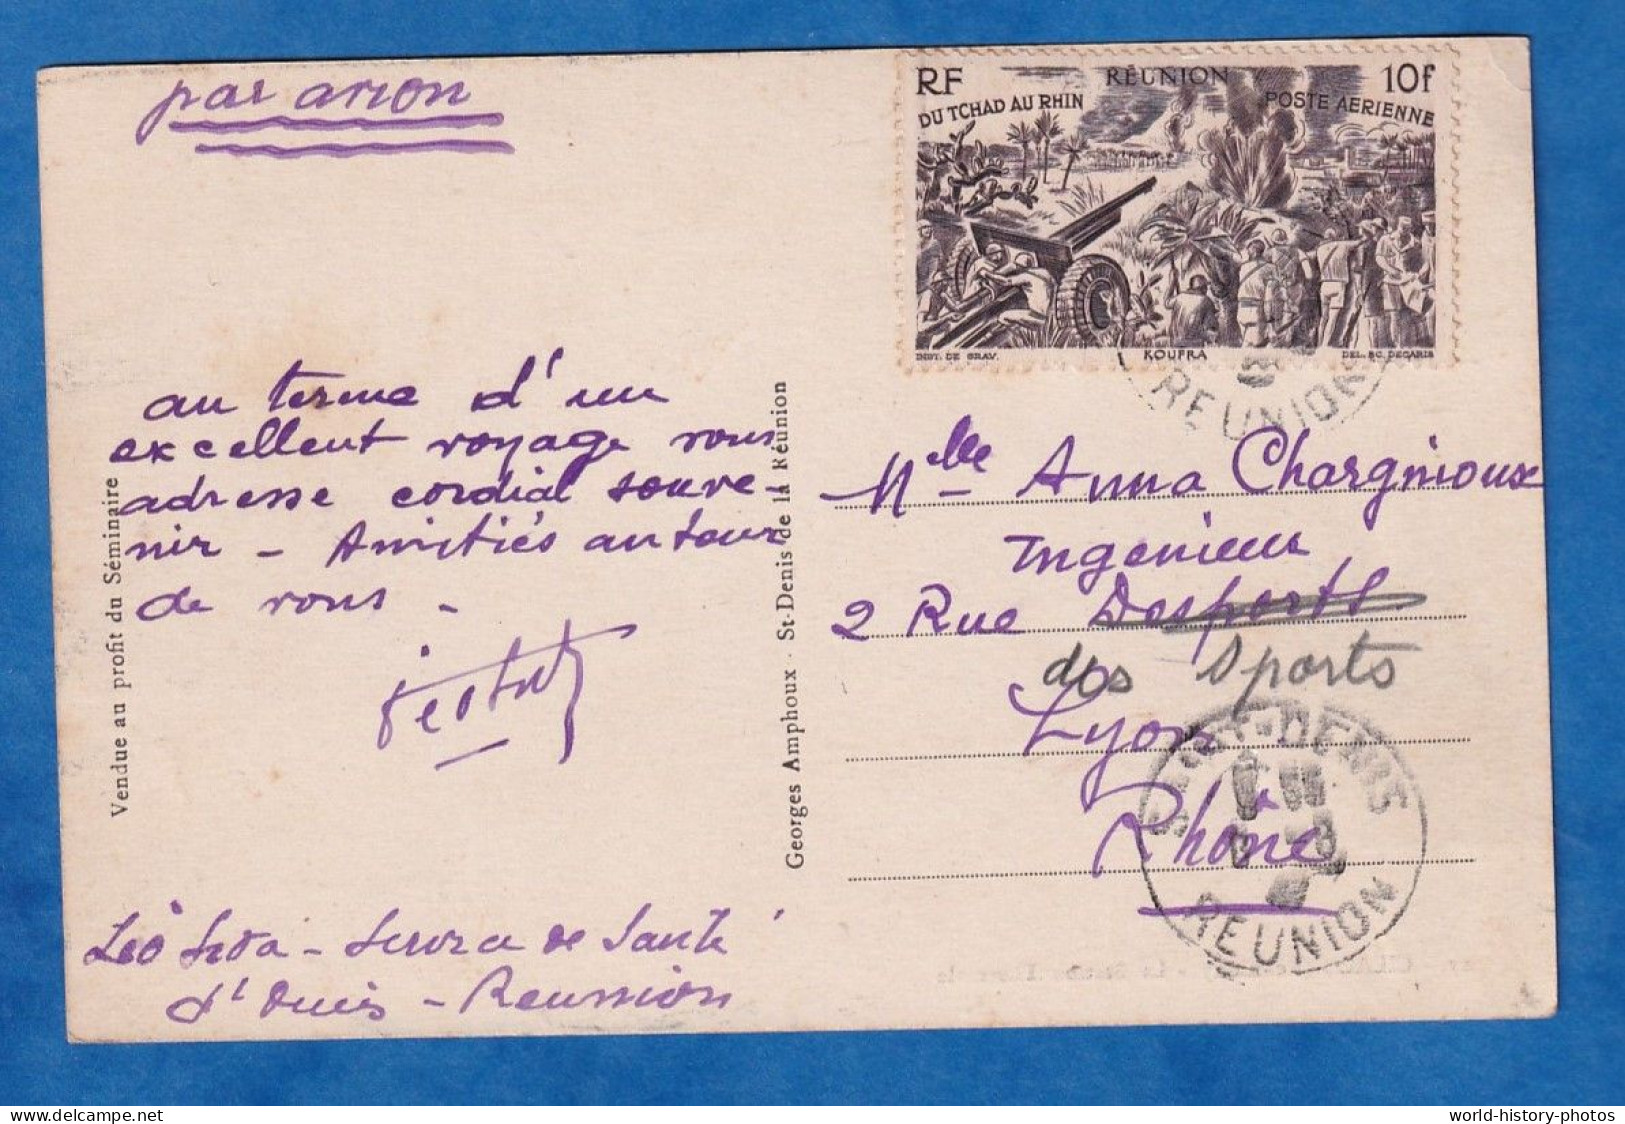 par avion
RF
RÉUNION
10f
DU TCHAD AU RHIN
POSTE AERIENNE
INST. DE GRAV.
KOUFRA
DEL. SC. DECARIS
RÉUNION
au terme d'un
excellent voyage vous
adresse cordial souve-
nir - Amitiés autour
de vous -
Vendue au profit du Séminaire
Georges Amphoux - St-Denis de la Réunion
Mlle Anna Chargnioux
Ingénieur
2 Rue Desports
des Sports
Lyon
Rhône
SAINT-DENIS
RÉUNION
Léo - Service de Santé
- Reunion
world-history-photos